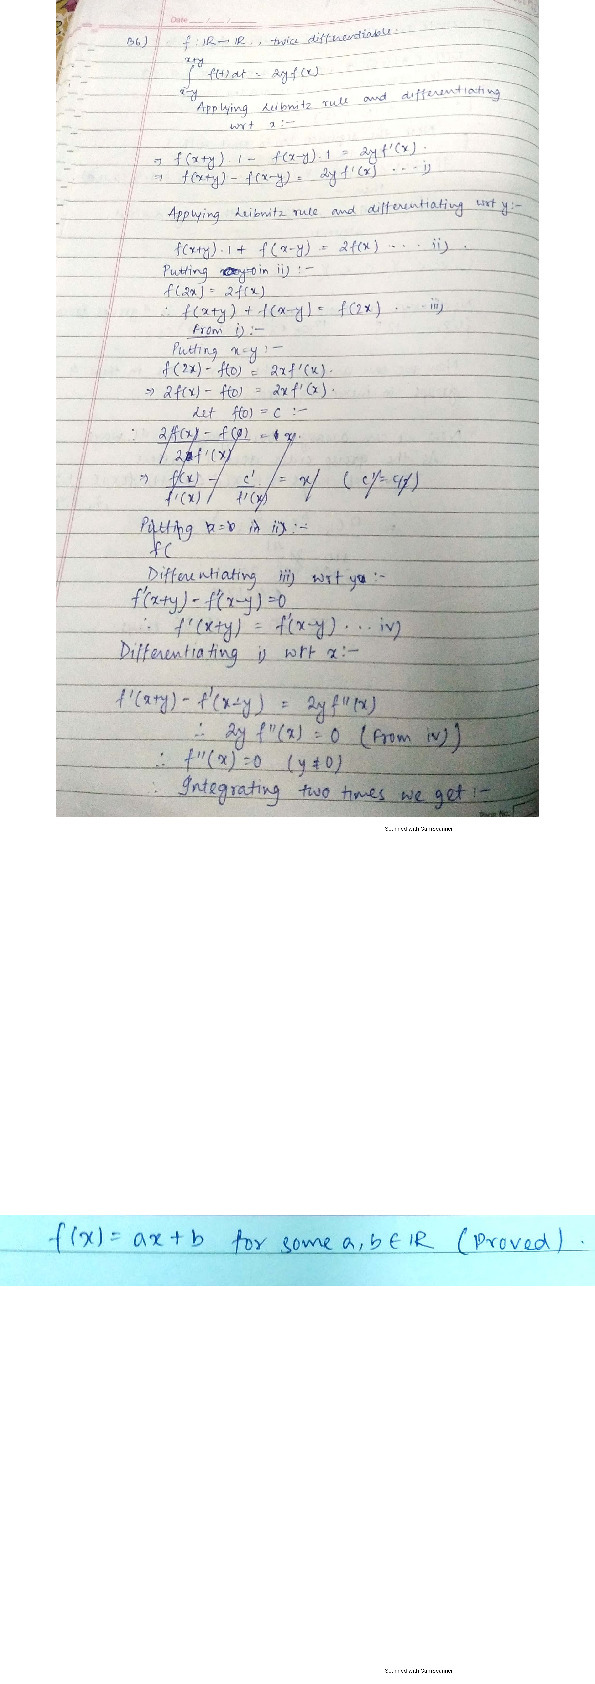 Date
B6) f: IR → IR., twice differentiable:-
x+y
∫ f(t) dt = 2y f(x)
x-y
Applying Leibnitz rule and differentiating
wrt x:-
⇒ f(x+y).1 - f(x-y).1 = 2y f'(x).
⇒ f(x+y) - f(x-y) = 2y f'(x) ... i)
Applying Leibnitz rule and differentiating wrt y:-
f(x+y).1 + f(x-y) = 2f(x) .... ii) .
Putting in ii) :-
f(2x) = 2f(x)
∴ f(x+y) + f(x-y) = f(2x) .... iii)
From i) :-
Putting x=y :-
f(2x) - f(0) = 2x f'(x).
⇒ 2f(x) - f(0) = 2x f'(x).
Let f(0) = c :-
∴ 2f(x) - f(0) = x.
2f'(x)
⇒ f(x) - c' = x ( c' = c/2 )
f'(x) f'(x)
Putting in ii) :-
f(
Differentiating iii) wrt y :-
f'(x+y) - f'(x-y) = 0
∴ f'(x+y) = f'(x-y) ... iv)
Differentiating i) wrt x :-
f'(x+y) - f'(x-y) = 2y f''(x)
∴ 2y f''(x) = 0 (From iv))
∴ f''(x) = 0 (y ≠ 0)
∴ Integrating two times we get :-
Scanned with CamScanner
f(x) = ax + b for some a, b ∈ IR (Proved) .
Scanned with CamScanner